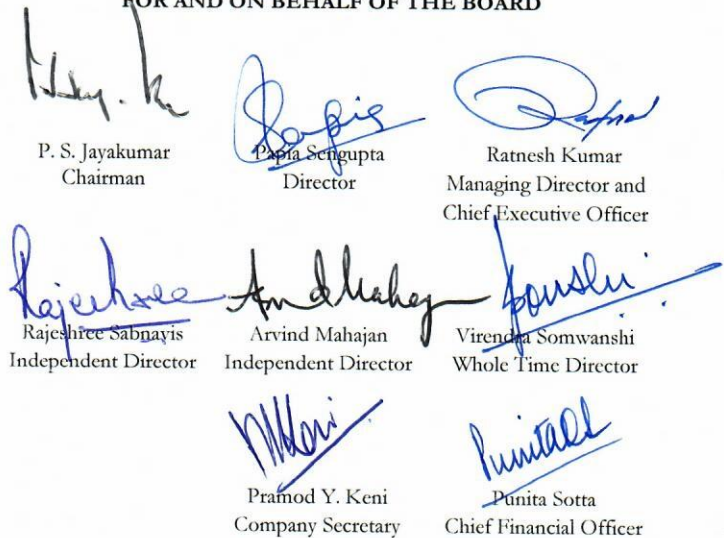 FOR AND ON BEHALF OF THE BOARD
P. S. Jayakumar
Chairman
Papia Sengupta
Director
Ratnesh Kumar
Managing Director and
Chief Executive Officer
Rajeshree Sabnavis
Independent Director
Arvind Mahajan
Independent Director
Virendra Somwanshi
Whole Time Director
Pramod Y. Keni
Company Secretary
Punita Sotta
Chief Financial Officer